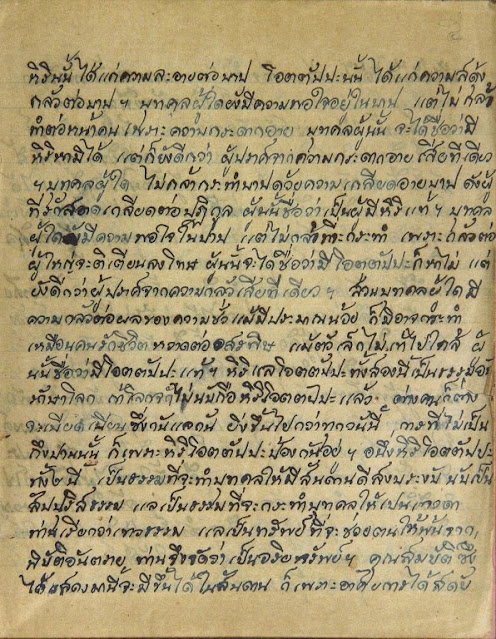 ๔
หิรินั้น ได้แก่ความละอายต่อบาป โอตตัปปะนั้น ได้แก่ความสดุ้ง
กลัวต่อบาป ฯ บุทคลผู้ใดยังมีความพอใจอยู่ในบาป แต่ไม่กล้า
ทำต่อหน้าคน เพราะความกระดากอาย บุทคลผู้นั้น จะได้ชื่อว่ามี
หิริหามิได้ แต่ก็ยังดีกว่า ผู้ปราศจากความกระดากอาย เสียทีเดียว
ฯ บุทคลผู้ใด ไม่กล้ากระทำบาปด้วยความเกลียดอายบาป ดังผู้
ที่รักสอาดเกลียดต่อปฏิกูล ผู้นั้นชื่อว่าเป็นผู้มีหิริแท้ ฯ บุทคล
ผู้ใดผู้มีความพอใจในบาป แต่ไม่กล้าที่จะกระทำ เพราะกลัวต่อ
ผู้ใหญ่จะติเตียนลงโทษ ผู้นั้นจะได้ชื่อว่ามีโอตตัปปะก็หาไม่ แต่
ยังดีกว่าผู้ปราศจากความกลัวเสียทีเดียว ฯ ส่วนบุทคลผู้ใดมี
ความกลัวต่อผลของความชั่ว แม้มีประมาณน้อย ก็มิอาจกระทำ
เหมือนคนรักชีวิตขลาดต่ออสรพิษ แม้ตัวเล็กไม่เข้าไปใกล้ ผู้
นั้นชื่อว่ามีโอตตัปปะแท้ ฯ หิริแลโอตตัปปะทั้งสองนี้เป็นธรรมป้อง
รักษาโลก ถ้าโลกไม่นับถือหิริโอตตัปปะแล้ว ต่างคนก็ต่าง
จะเบียดเบียนซึ่งกันแลกัน ยิ่งขึ้นไปกว่าทุกวันนี้ การที่ไม่เป็น
ถึงปานนั้น ก็เพราะหิริโอตตัปปะป้องกันอยู่ ฯ อนึ่งหิริโอตตัปปะ
ทั้ง ๒ นี้ เป็นธรรมที่จะทำบุทคลให้มีสันดานดีสงบระงับ นับเป็น
สัปบุริสธรรม แลเป็นธรรมที่จะกระทำบุทคลให้เปนเทวดา
ท่านเรียกว่าเทวธรรม แลเป็นทรัพย์ที่จะช่วยตนให้พ้นจาก
พิบัติอันตราย ท่านจึงจัดว่าเป็นอริยทรัพย์ ฯ คุณสมบัติซึ่ง
ได้แสดงมานี้จะมีขึ้นได้ในสันดาน ก็เพราะอาศัยการได้สดับ